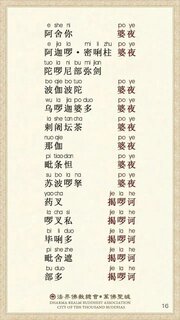 e she ni po ye
阿舍你 婆夜
e jia la mi li zhu po ye
阿迦囉•密唎柱 婆夜
tuo la ni bu mi jian
陀囉尼部弥剑
bo qie bo tuo po ye
波伽波陀 婆夜
wu la jia po duo po ye
乌囉迦婆多 婆夜
la she tan cha po ye
剌阇坛茶 婆夜
nuo qie po ye
那伽 婆夜
pi tiao dan po ye
毗条怛 婆夜
su bo la na po ye
苏波囉拏 婆夜
yao cha jie la he
药叉 揭囉诃
la cha si jie la he
囉叉私 揭囉诃
bi li duo jie la he
毕唎多 揭囉诃
pi she zhe jie la he
毗舍遮 揭囉诃
bu duo jie la he
部多 揭囉诃
法界佛教總會•萬佛聖城
DHARMA REALM BUDDHIST ASSOCIATION
CITY OF TEN THOUSAND BUDDHAS
16